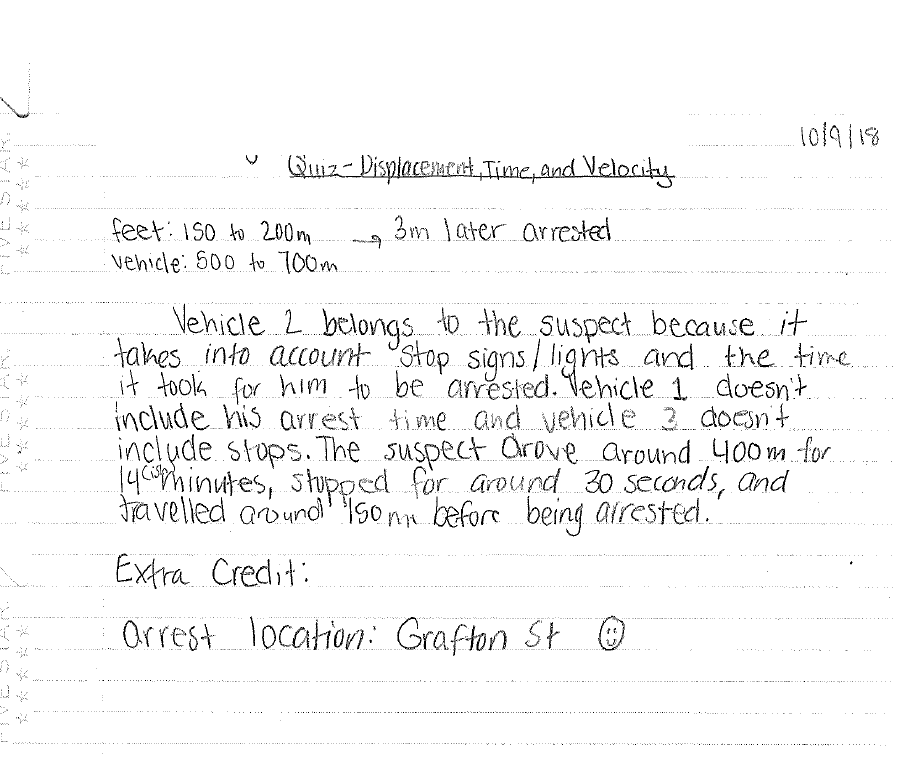 10/9/18
Quiz - Displacement, Time, and Velocity
feet: 150 to 200m → 3m later arrested
vehicle: 500 to 700m
Vehicle 2 belongs to the suspect because it
takes into account stop signs/lights and the time
it took for him to be arrested. Vehicle 1 doesn't
include his arrest time and vehicle 3 doesn't
include stops. The suspect drove around 400m for
14 minutes, stopped for around 30 seconds, and
travelled around 150m before being arrested.
Extra Credit:
arrest location: Grafton St ☺
FIVE STAR.
FIVE STAR.
FIVE STAR.